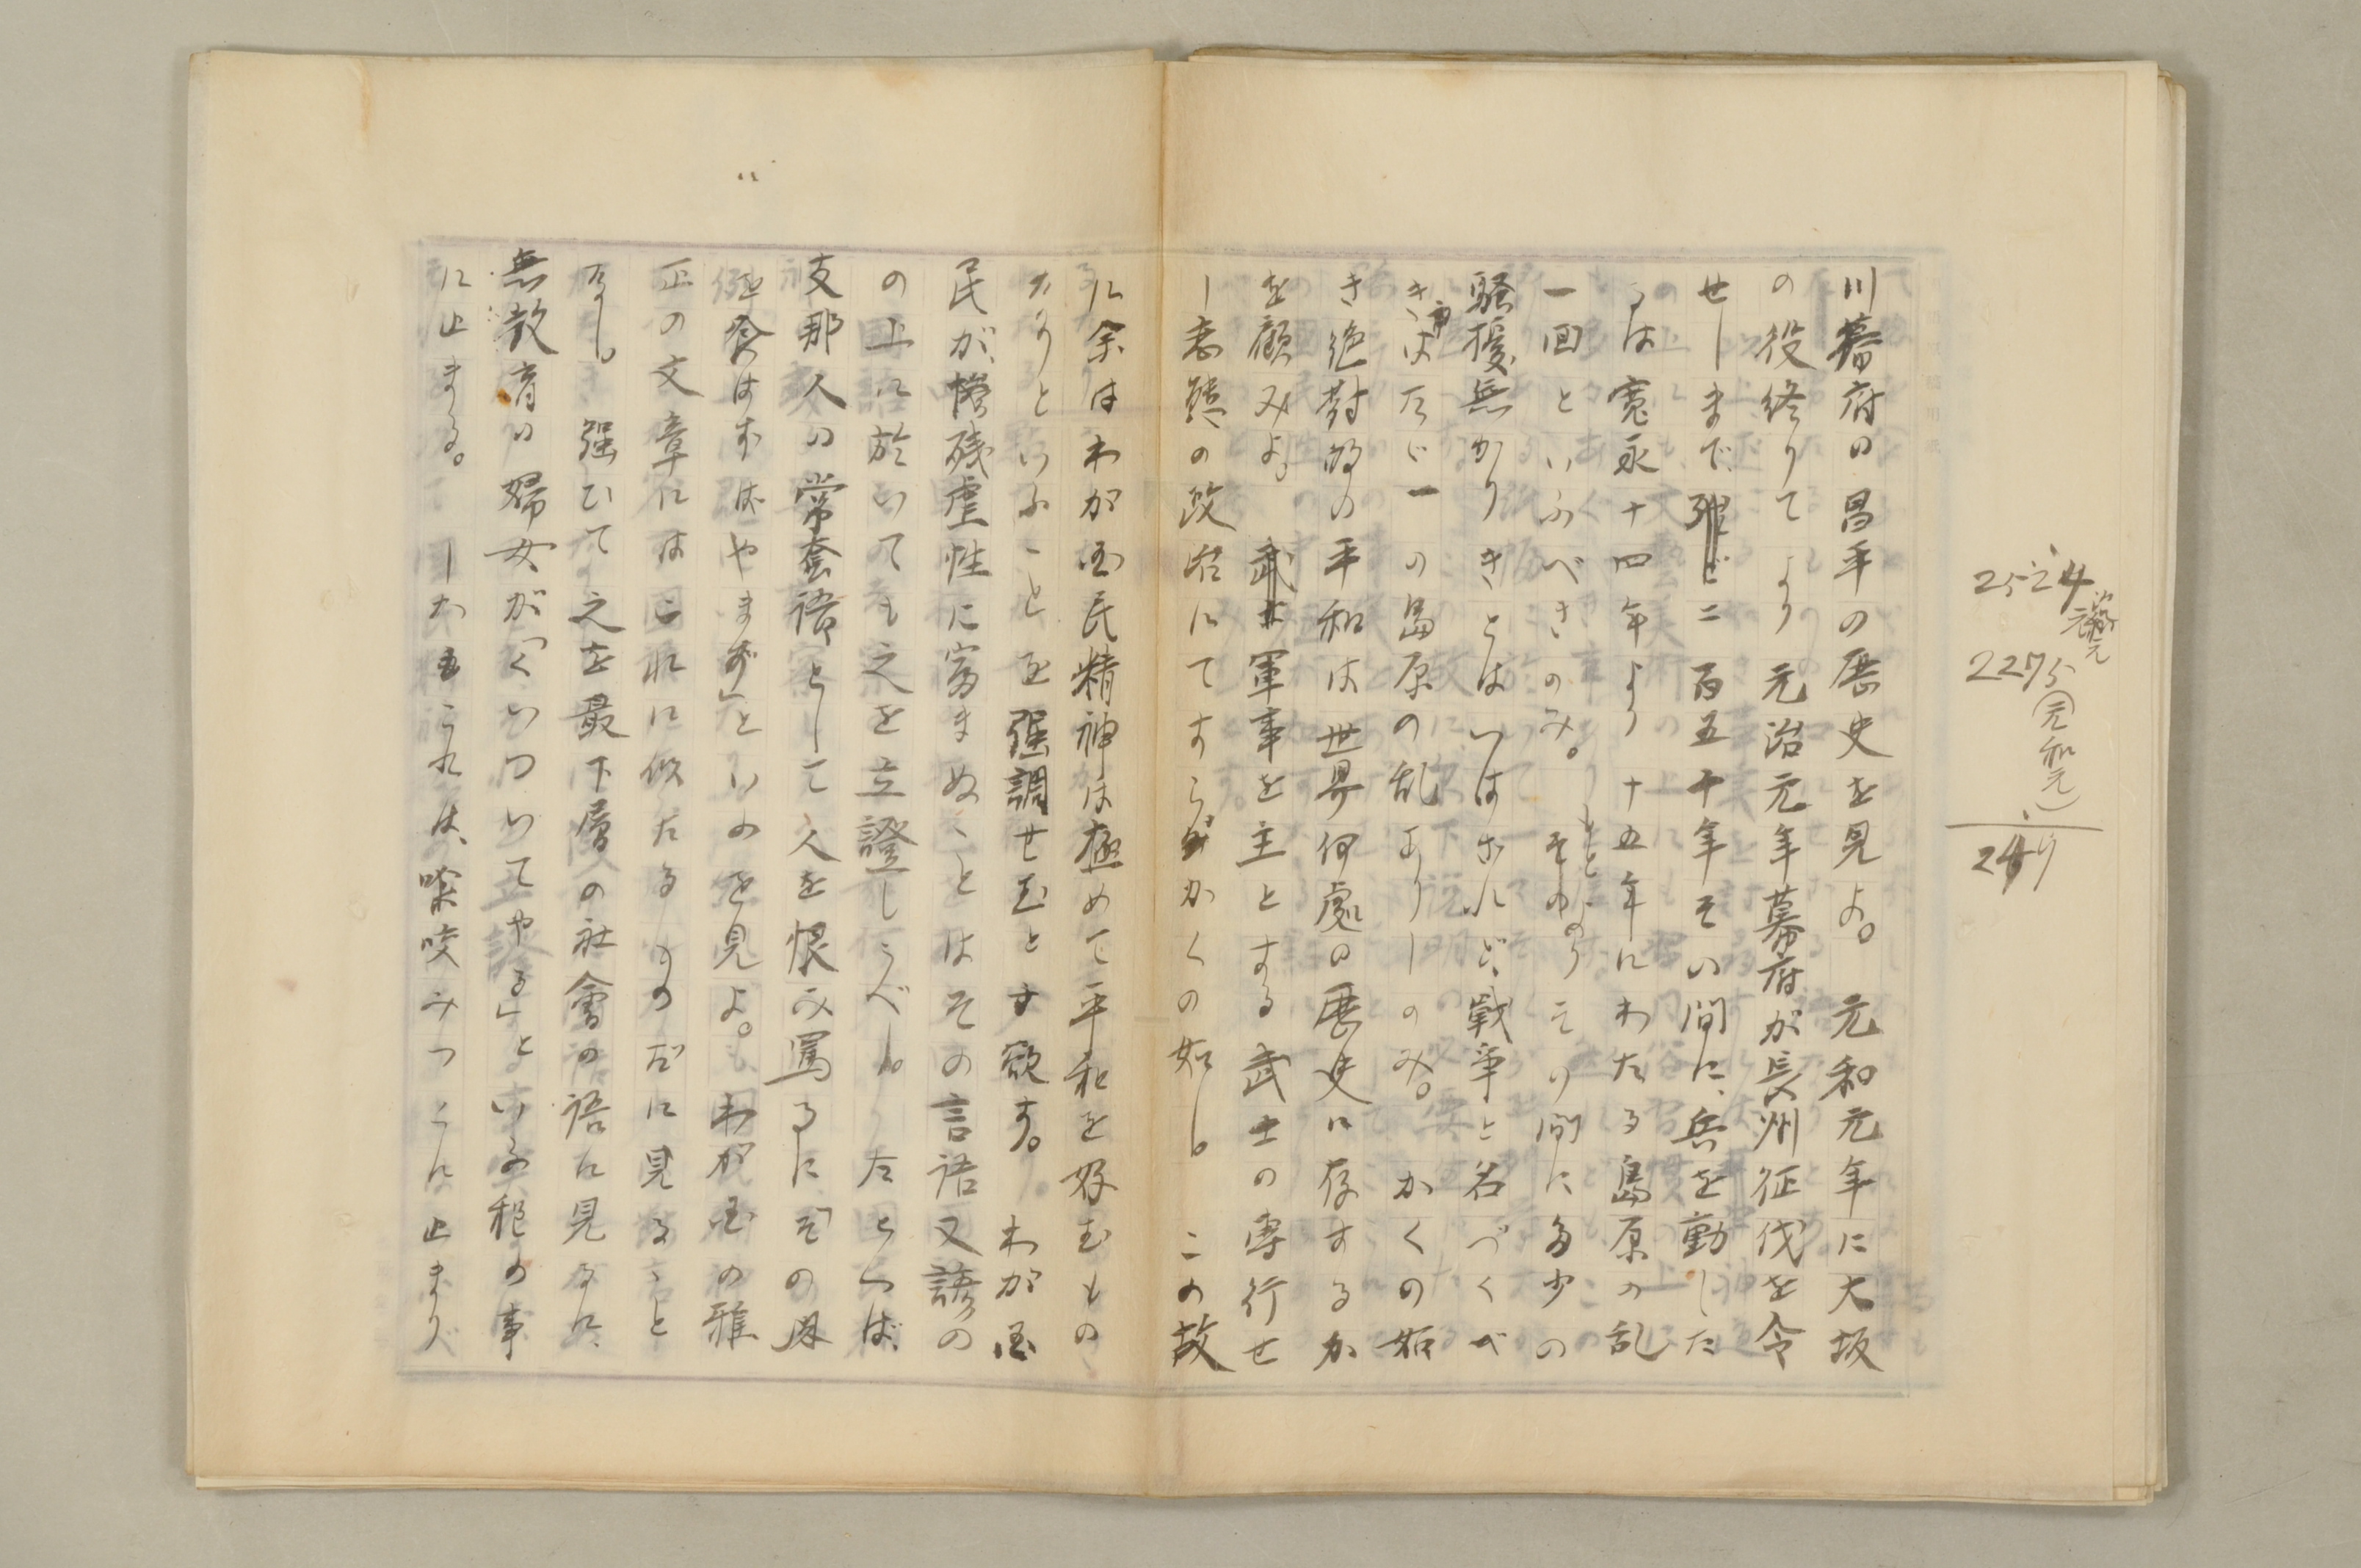 川幕府の昌平の歴史を見よ。元和元年に大坂
の役終りてより元治元年幕府が長州征伐を令
せしまで殆ど二百五十年その間に、兵を動した
るは寛永十四年より十五年にわたる島原の乱
一回といふべきのみ。もとよりその間に多少の
騒擾無かりきとはいはざれど、戦争と名づくべ
きはたゞ一の島原の乱ありしのみ。かくの如
き絶対的の平和は世界何處の歴史に存するか
を顧みよ。武士軍事を主とする武士の専行せ
し専制の政治にてすらかくの如し。この故
に余はわが国民精神は極めて平和を好むもの
なりといふことを強調せむと欲す。わが国
民が、惨残虐性に富まぬことはその言語又諺の
の上に於いても之を立證しうべし。たとへば、
支那人の常套語として人を恨み罵るに、「その肉
を食はずばやまず」といふを見よ。わが国の雅
正の文章にはこれに似たるものだに見ること
なし。強ひて之を最下層の社會の語に見るに、
無教育の婦女が「くいついてやる」といふ程の事
に止まる。しかもこれは、噛咬みつくに止まり
2524
元治元
2275
(元和元)
249